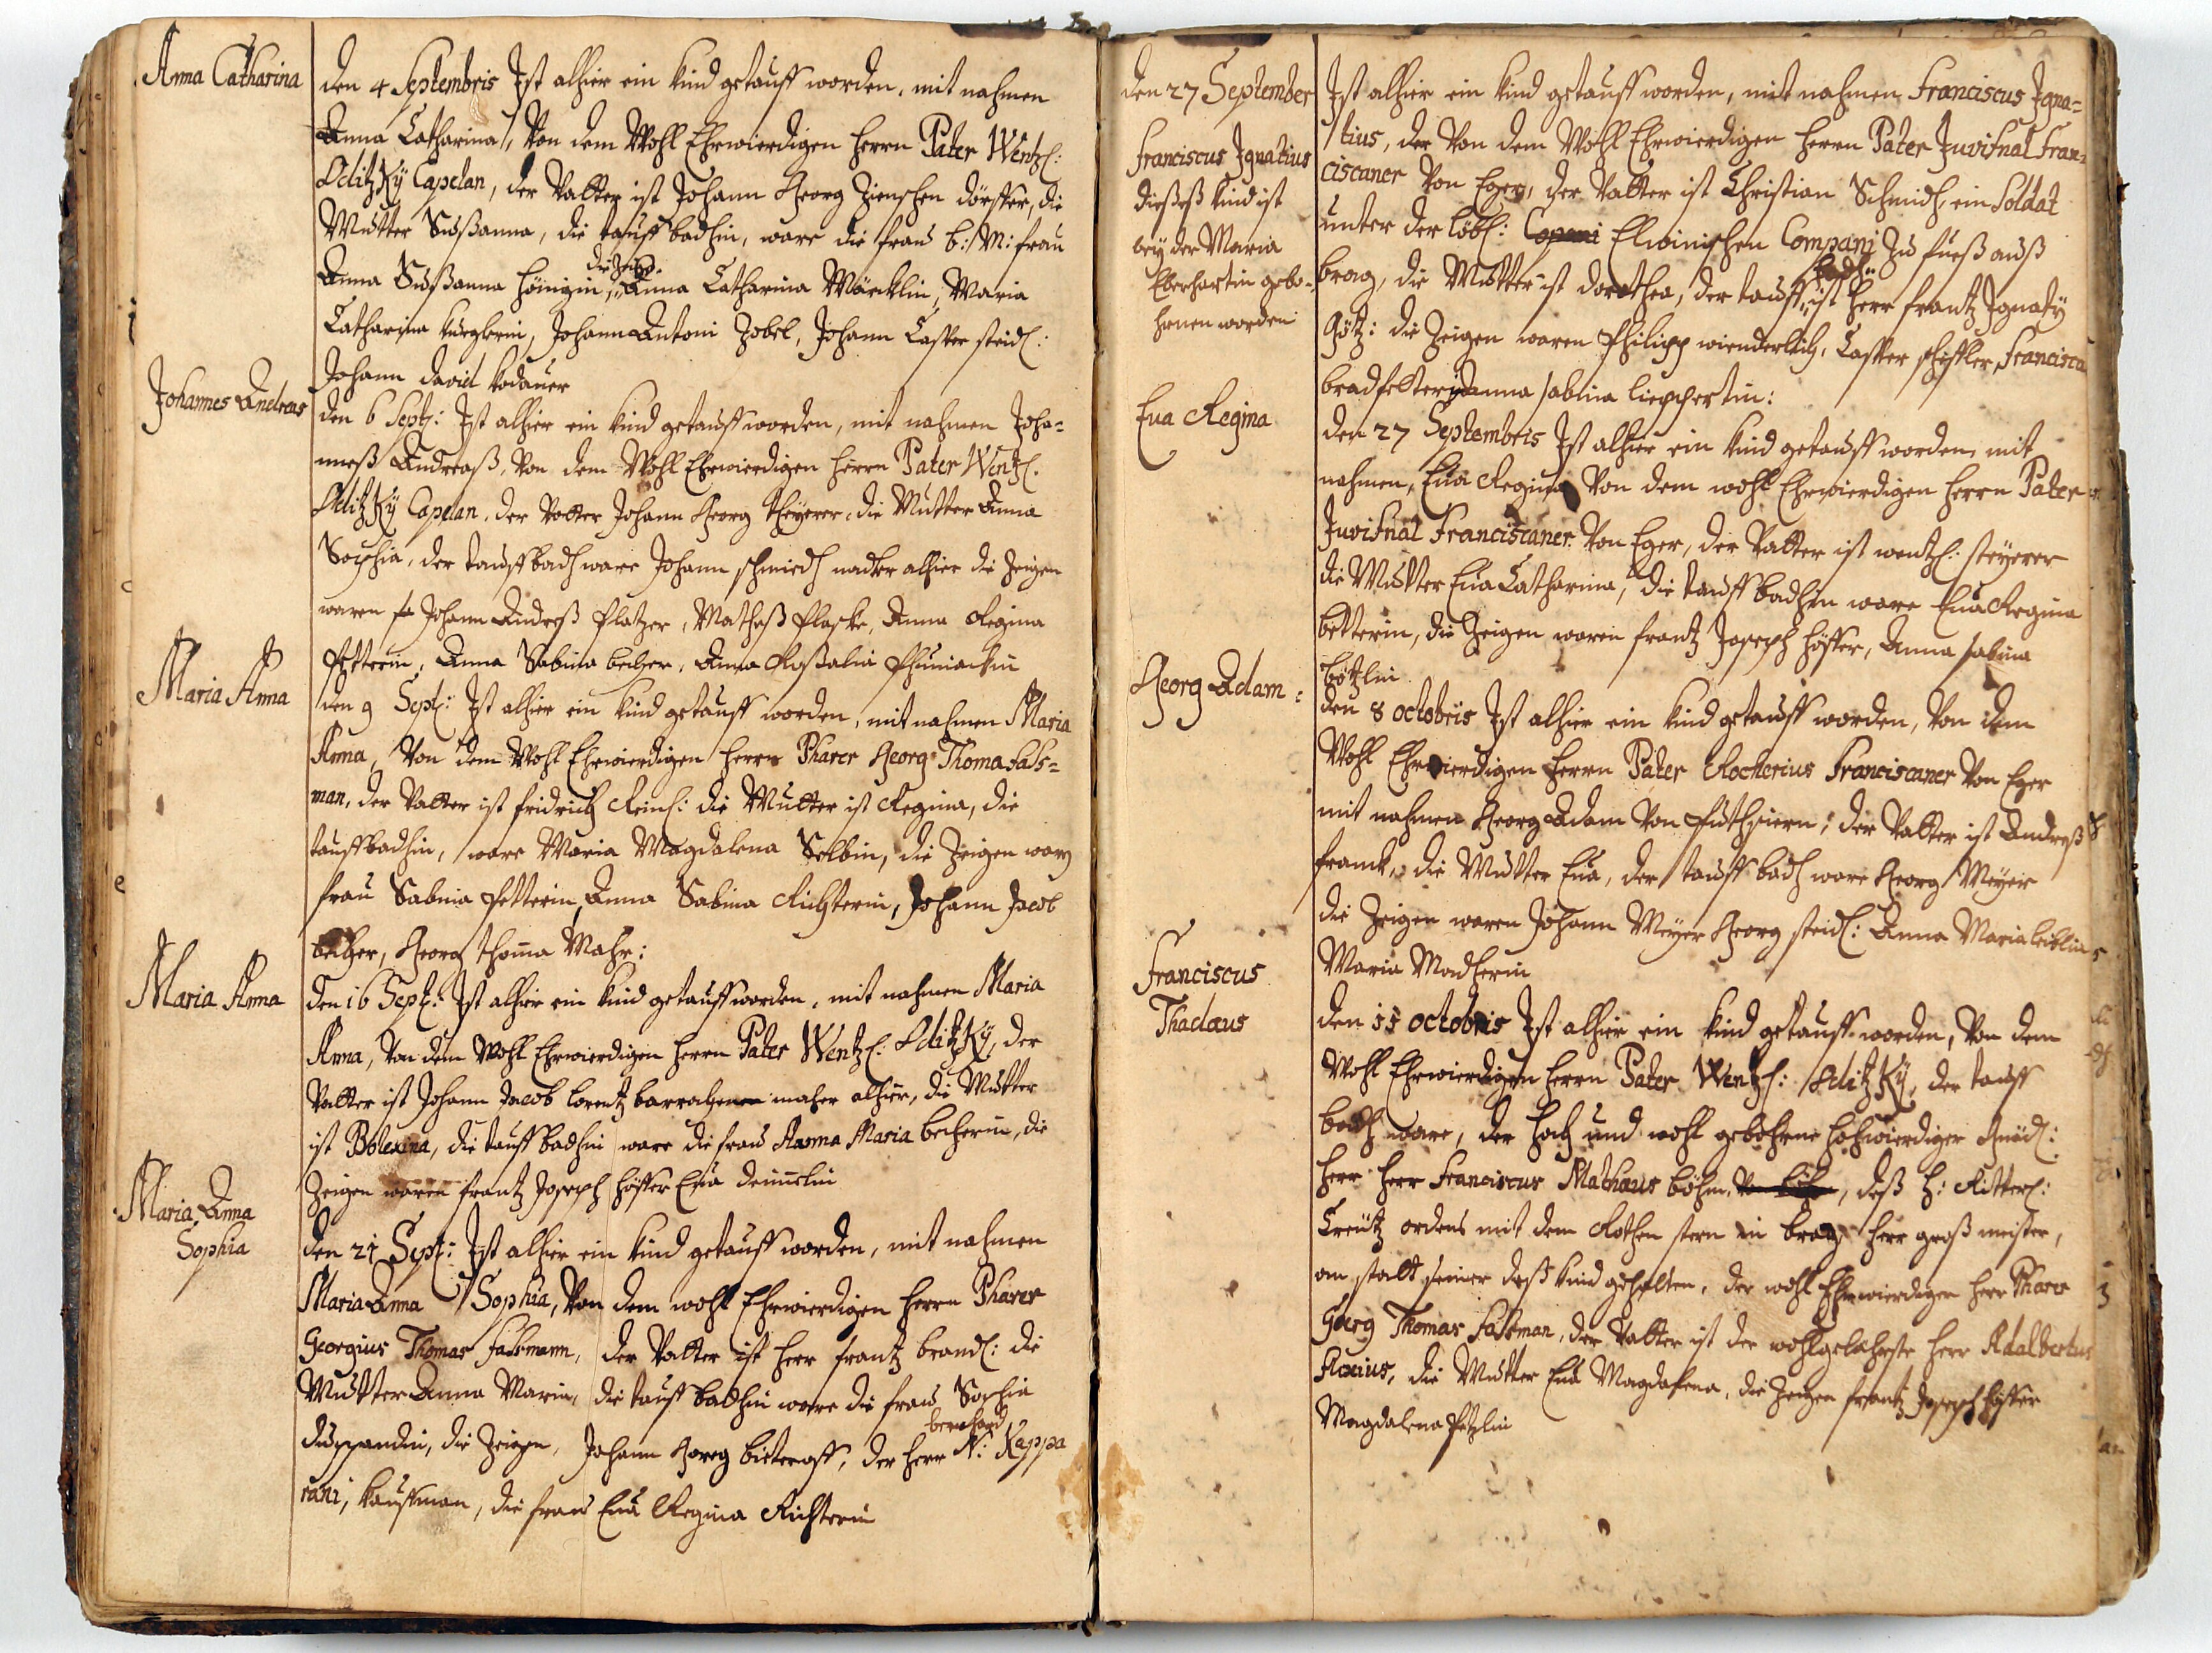 Anna Catharina
den 4 Septembris Ist alhier ein kind getauff worden, mit nahmen
Anna Catharina, Von dem Wohl Ehrwierdigen herrn Pater Wentzl:
Oditzkÿ Capelan, der Vatter ist Johann Georg die
Mutter Sußanna, die tauff badhin, ware die frau b: M: frau
Anna Sußanna die Zeigen Anna Catharina Märcklin, Maria
Catharina Johann Antoni Zobel, Johann Casper steidl:
Johann david kodauer
Johannes Andreas
den 6 Septs: Ist alhier ein kind getauff worden, mit nahmen Joha=
nneß Andreaß, Von dem Wohl Ehrwierdigen herrn Pater Wentzl.
Oditzkÿ Capelan, der Vatter Johann Georg die Mutter Anna
Sophia, der tauff badh ware Johann schmidh alhier die Zeigen
waren Johann Andreß Platzer, Matheß Anna Regina
Anna Sabina becher, Anna Roßalia
Maria Anna
den 9 Sept: Ist alhier ein kind getauff worden, mit nahmen Maria
Anna, Von dem Wohl Ehrwierdigen herrn Pharer Georg Thoma Fass=
man, der Vatter ist fridrich Reinl: die Mutter ist Regina, die
tauff badhin, ware Maria Magdalena Selbin, die Zeigen warn
frau Sabina Anna Sabina Richterin, Johann Jacob
becher, Georg thoma Mahr:
Maria Anna
den 16 Sept: Ist alhier ein kind getauff worden, mit nahmen Maria
Anna, Von dem Wohl Ehrwierdigen herrn Pater Wentzl: Oditzkÿ, der
Vatter ist Johann Jacob lorentz macher alhier, die Mutter
ist die tauff badhin ware die frau Anna Maria becherin, die
Zeigen waren frantz Joseph höffer Eua
Maria Anna
Sophia
den 21 Sept: Ist alhier ein kind getauff worden, mit nahmen
Maria Anna Sophia, Von dem wohl Ehrwierdigen herrn Pharer
Georgius Thomas Fassmann, der Vatter ist herr frantz brandl: die
Mutter Anna Maria, die tauff badhin ware die frau Sophia
die Zeigen, Johann Georg der herr bernhard N: Kappa
rani, Kauffman, die frau Eua Regina Richterin
den 27 September
Franciscus Ignatius
dießeß kind ist
bey der Maria
Eberhartin gebo=
hrnen worden
Ist alhier ein kind getauff worden, mit nahmen Franciscus Igna=
tius, der Von dem Wohl Ehrwierdigen herrn Pater Juvifnal Fran=
ciscaner Von Eger, der Vatter ist Christian Schmidh, ein Soldat
unter der löbl: Copani Elwinischen Compani zu fueß auß
brag, die Mutter ist dorothea, der tauff badh ist herr frantz Ignatÿ
Götz: die Zeigen waren Philipp Casper Francisca
Anna sabina liepphertin:
Eua Regina
den 27 Septembris Ist alhier ein kind getauff worden mit
nahmen, Eua Regina Von dem wohl Ehrwierdigen herrn Pater
Juvifnal Franciscaner Von Eger, der Vatter ist wentzl: steÿerer
die Mutter Eua Catharina, die tauff badhin ware Eua Regina
betterin, die Zeigen waren frantz Joseph höffer, Anna sabina
bötzlin
Georg Adam:
den 8 octobris Ist alhier ein kind getauff worden, Von dem
Wohl Ehrwierdigen herrn Pater Rocherius Franciscaner Von Eger
mit nahmen Georg Adam Von der Vatter ist Andreß
franck, die Mutter Eua, der tauff badh ware Georg Meÿer
die Zeigen waren Johann Meÿer Georg steidl: Anna Maria leiblin
Maria Madlerin
Franciscus
Thadæus
den 15 octobris Ist alhier ein kind getauff worden, Von dem
Wohl Ehrwierdigen herrn Pater Wentzl: Oditzkÿ, der tauff
badh ware, der hoch und wohl gebohrne hohwierdiger Gnädl:
herr herr Franciscus Mathæus böhm, deß h: Ritterl:
Creutz ordens mit dem Rothen stern in brag herr groß meister,
an statt seiner daß kind gehalten, der wohl Ehrwierdigen herr Pharer
Georg Thomas Fassman, der Vatter ist der wohlgelehrte herr Adalbertus
die Mutter Eua Magdalena, die Zeigen frantz Joseph höffer
Magdalena